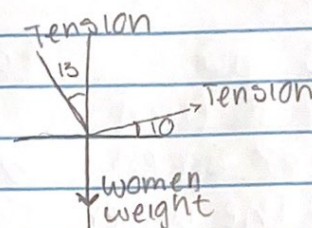 Tension
13
Tension
10
women
weight